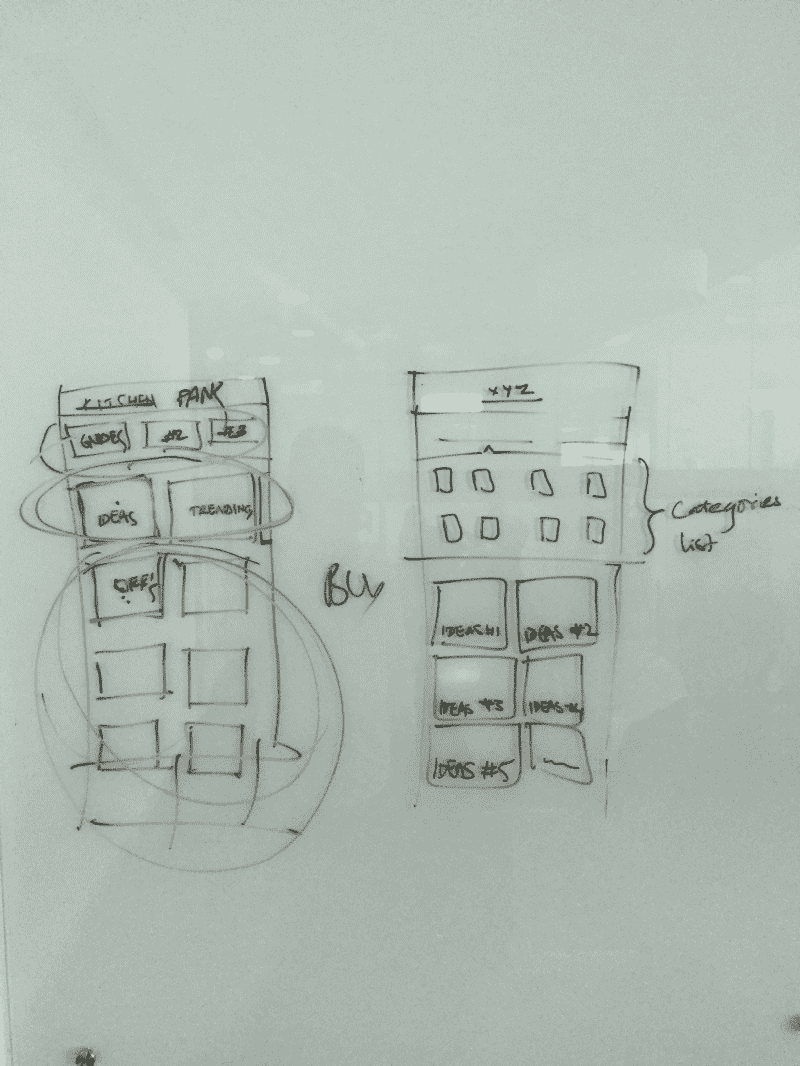 KITCHEN
GUIDES #2
IDEAS TRENDING
XYZ
Categories
List
IDEAS #1 IDEAS #2
IDEAS #3 IDEAS #4
IDEAS #5